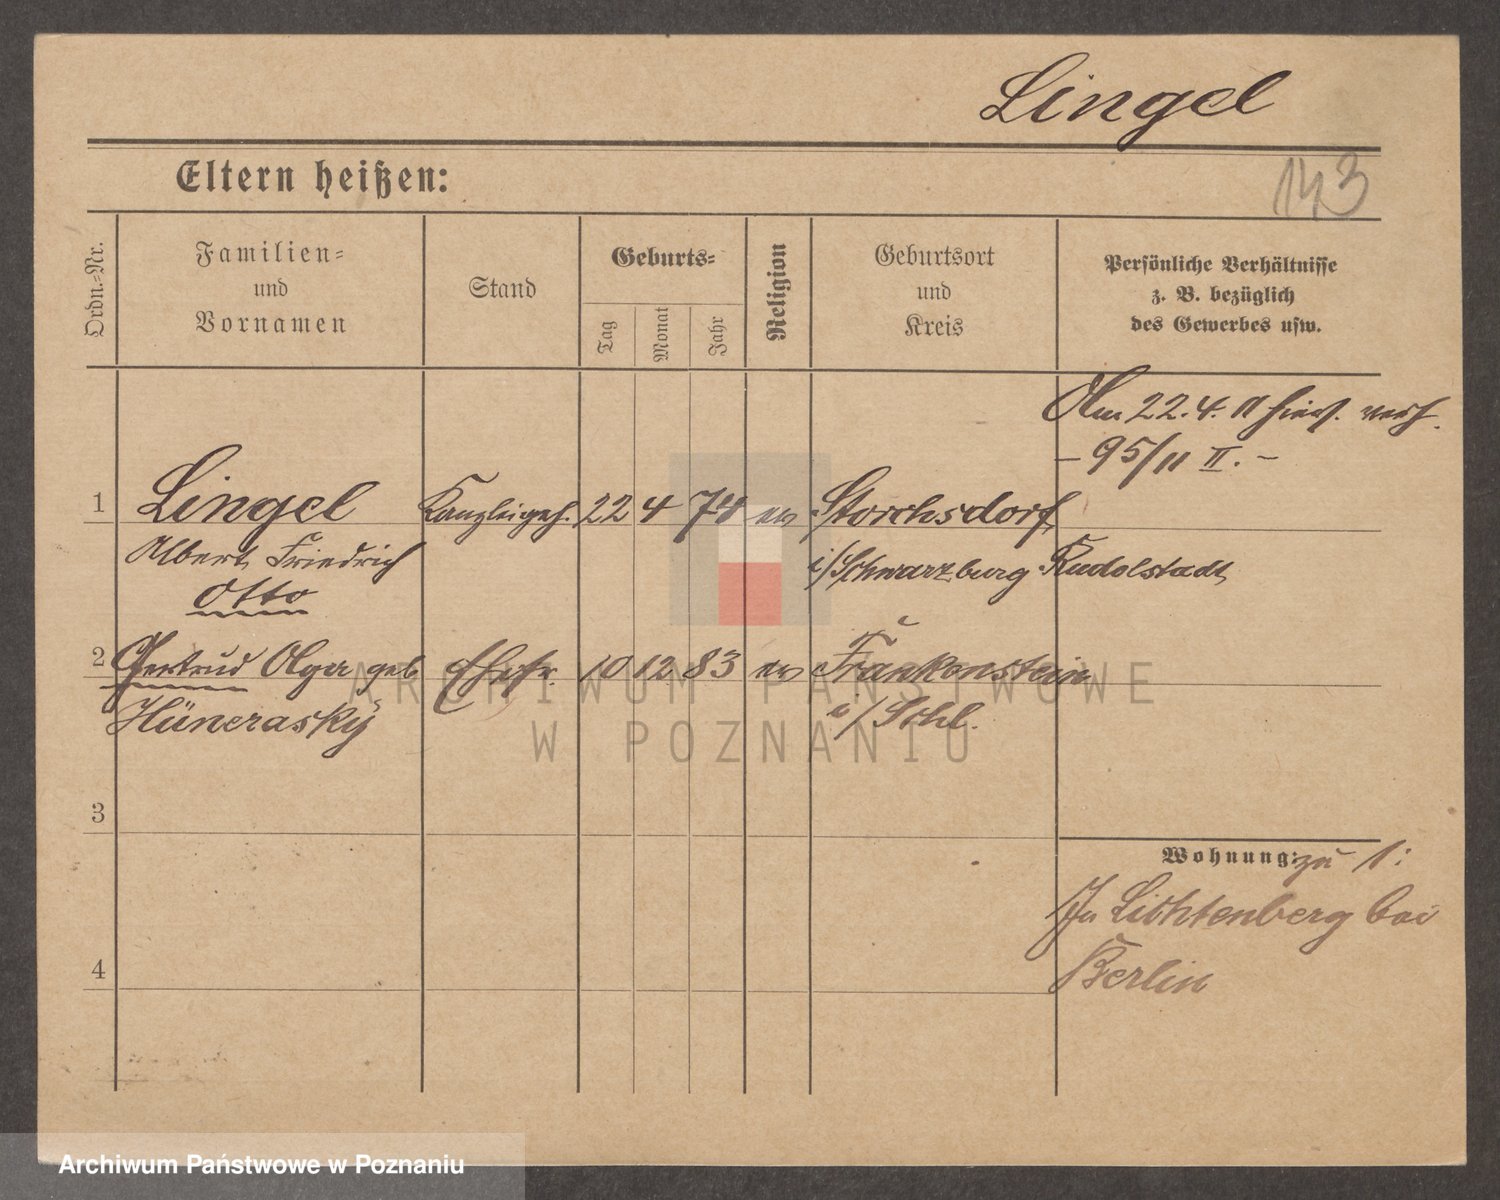 Lingel
143
Eltern heißen:
Ordn.-Nr.
Familien-
und
Vornamen
Stand
Geburts-
Tag
Monat
Jahr
Religion
Geburtsort
und
Kreis
Persönliche Verhältnisse
z. B. bezüglich
des Gewerbes usw.
Am 22.4.11 hies. verh.
- 95/11 II. -
1 Lingel Kanzleigeh. 22 4 74 ev Storchsdorf
Albert Friedrich i/Schwarzburg Rudolstadt
Otto
2 Gertrud Olga geb Ehefr. 10 12 83 ev Frankenstein
Hünerasky i/Schl.
3
Wohnung: zu 1:
In Lichtenberg bei
Berlin
4
ARCHIWUM PAŃSTWOWE
W POZNANIU
Archiwum Państwowe w Poznaniu